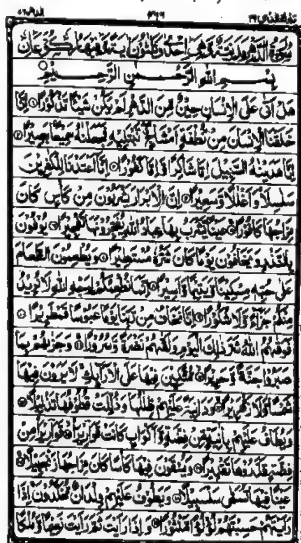 هَلْ اَتٰى عَلَى الْاِنْسَانِ حِيْنٌ مِّنَ الدَّهْرِ لَمْ يَكُنْ شَيْـًٔا مَّذْكُوْرًا ۝ اِنَّا
خَلَقْنَا الْاِنْسَانَ مِنْ نُّطْفَةٍ اَمْشَاجٍ نَّبْتَلِيْهِ فَجَعَلْنٰهُ سَمِيْعًۢا بَصِيْرًا ۝
اِنَّا هَدَيْنٰهُ السَّبِيْلَ اِمَّا شَاكِرًا وَّاِمَّا كَفُوْرًا ۝ اِنَّآ اَعْتَدْنَا لِلْكٰفِرِيْنَ
سَلٰسِلَا۟ وَاَغْلٰلًا وَّسَعِيْرًا ۝ اِنَّ الْاَبْرَارَ يَشْرَبُوْنَ مِنْ كَاْسٍ كَانَ
مِزَاجُهَا كَافُوْرًا ۝ عَيْنًا يَّشْرَبُ بِهَا عِبَادُ اللّٰهِ يُفَجِّرُوْنَهَا تَفْجِيْرًا ۝ يُوْفُوْنَ
بِالنَّذْرِ وَيَخَافُوْنَ يَوْمًا كَانَ شَرُّهٗ مُسْتَطِيْرًا ۝ وَيُطْعِمُوْنَ الطَّعَامَ
عَلٰى حُبِّهٖ مِسْكِيْنًا وَّيَتِيْمًا وَّاَسِيْرًا ۝ اِنَّمَا نُطْعِمُكُمْ لِوَجْهِ اللّٰهِ لَا نُرِيْدُ
مِنْكُمْ جَزَآءً وَّلَا شُكُوْرًا ۝ اِنَّا نَخَافُ مِنْ رَّبِّنَا يَوْمًا عَبُوْسًا قَمْطَرِيْرًا ۝
فَوَقٰهُمُ اللّٰهُ شَرَّ ذٰلِكَ الْيَوْمِ وَلَقّٰهُمْ نَضْرَةً وَّسُرُوْرًا ۝ وَجَزٰهُمْ بِمَا
صَبَرُوْا جَنَّةً وَّحَرِيْرًا ۝ مُّتَّكِـِٕيْنَ فِيْهَا عَلَى الْاَرَآئِكِ لَا يَرَوْنَ فِيْهَا
شَمْسًا وَّلَا زَمْهَرِيْرًا ۝ وَدَانِيَةً عَلَيْهِمْ ظِلٰلُهَا وَذُلِّلَتْ قُطُوْفُهَا تَذْلِيْلًا ۝
وَيُطَافُ عَلَيْهِمْ بِاٰنِيَةٍ مِّنْ فِضَّةٍ وَّاَكْوَابٍ كَانَتْ قَوَارِيْرَا۠ ۝ قَوَارِيْرَا۟ مِنْ
فِضَّةٍ قَدَّرُوْهَا تَقْدِيْرًا ۝ وَيُسْقَوْنَ فِيْهَا كَاْسًا كَانَ مِزَاجُهَا زَنْجَبِيْلًا ۝
عَيْنًا فِيْهَا تُسَمّٰى سَلْسَبِيْلًا ۝ وَيَطُوْفُ عَلَيْهِمْ وِلْدَانٌ مُّخَلَّدُوْنَ اِذَا
رَاَيْتَهُمْ حَسِبْتَهُمْ لُؤْلُؤًا مَّنْثُوْرًا ۝ وَاِذَا رَاَيْتَ ثَمَّ رَاَيْتَ نَعِيْمًا وَّمُلْكًا